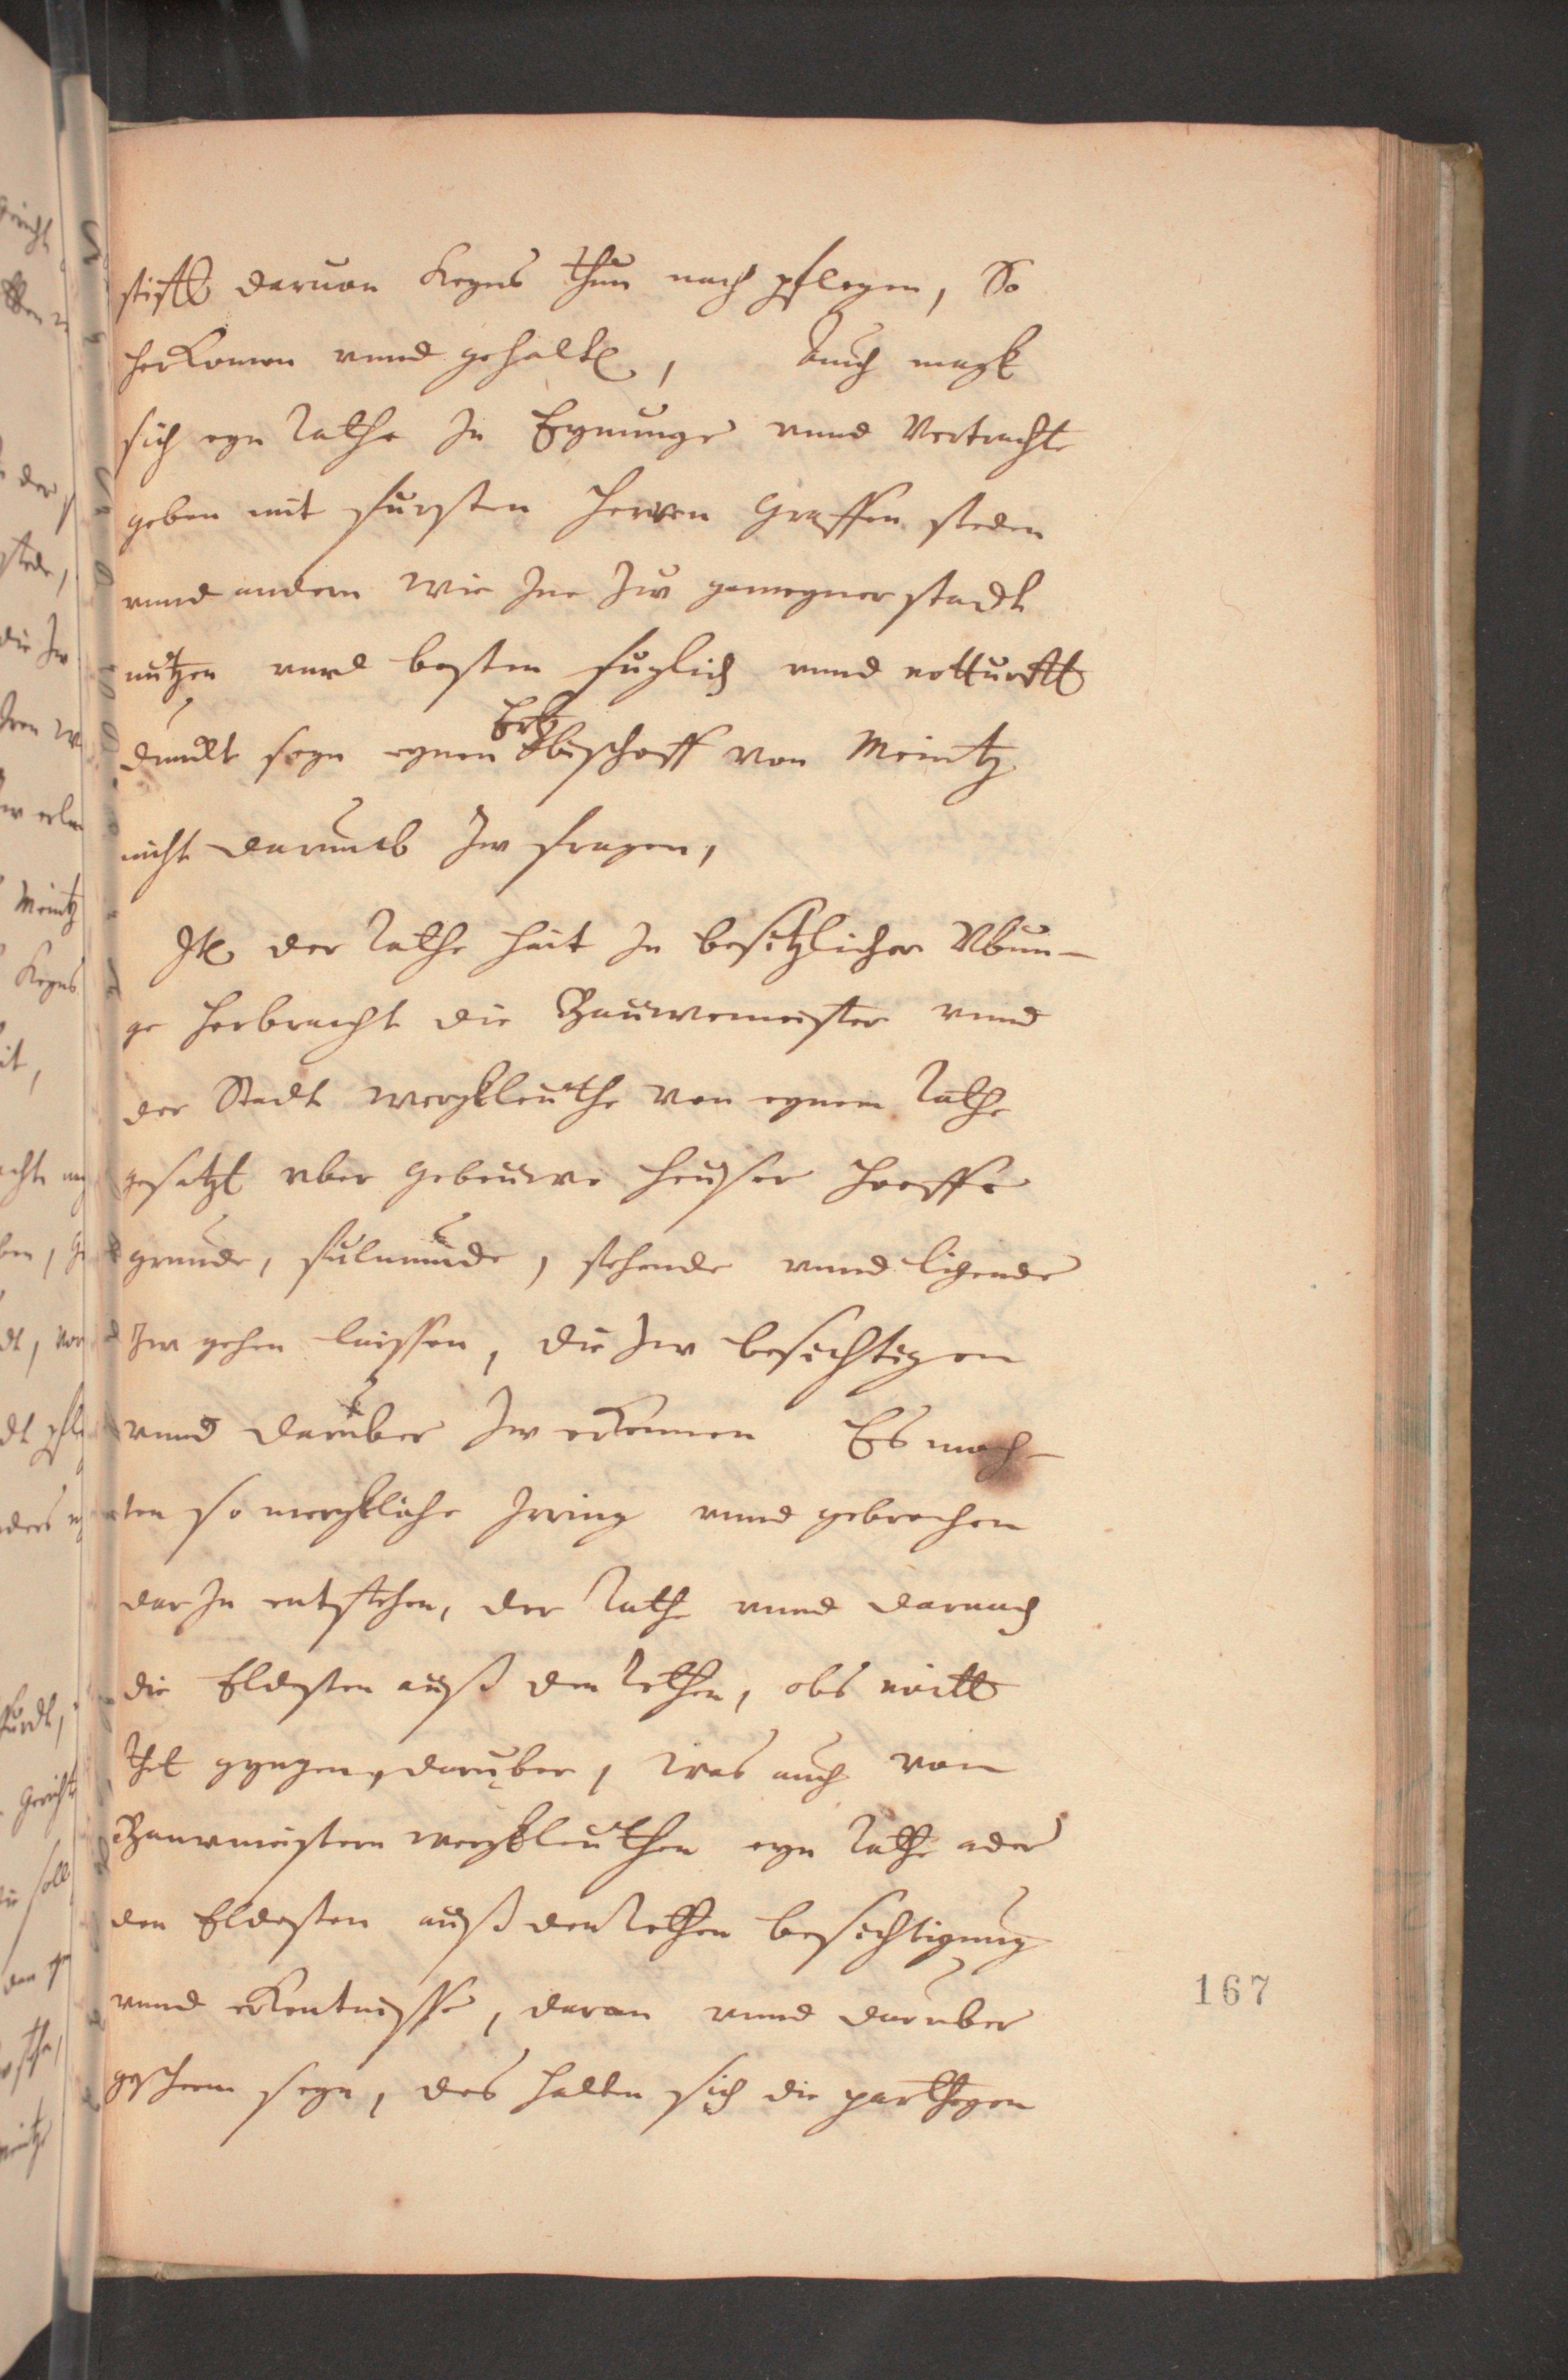 stifft daruon keyns thun nach pflegen, So
herkomen vnnd gehalten, Auch magk
sich eyn Rathe In Eynunge vnnd Vertrachte
geben mit fursten herren Graffen steden
vnnd andern wie Ine Zw gemeyner stadt
nutzen vnnd besten fuglich vnnd notturfft
dunckt seyn eynen Ertzbischoff von Meintz
nicht darumb Zw fragen,
Item der Rathe hait In besitzlicher Vbun-
ge herbracht die Bauwemeister vnnd
der Stadt wergkleuthe von eynem Rathe
gesatzt vber gebeuwe heuser hoeffe
grunde, fulmunde, stehende vnnd ligende
Zw gehen laissen, die Zw besichtigen
vnnd daruber Zw erkennen Es moch-
ten so mergkliche Irring vnnd gebrechen
dar In entstehen, der Rathe vnnd darnach
die Eldesten auß den Rethen, obs noitt
thet gyngen daruber, was auch von
Bauwmeistern wergkleuthen eyn Rathe ader
den Eldesten auß den Rethen besichtigung
vnnd erkentnisse, daran vnnd daruber
gescheen seyn, des halten sich die partheyen
167